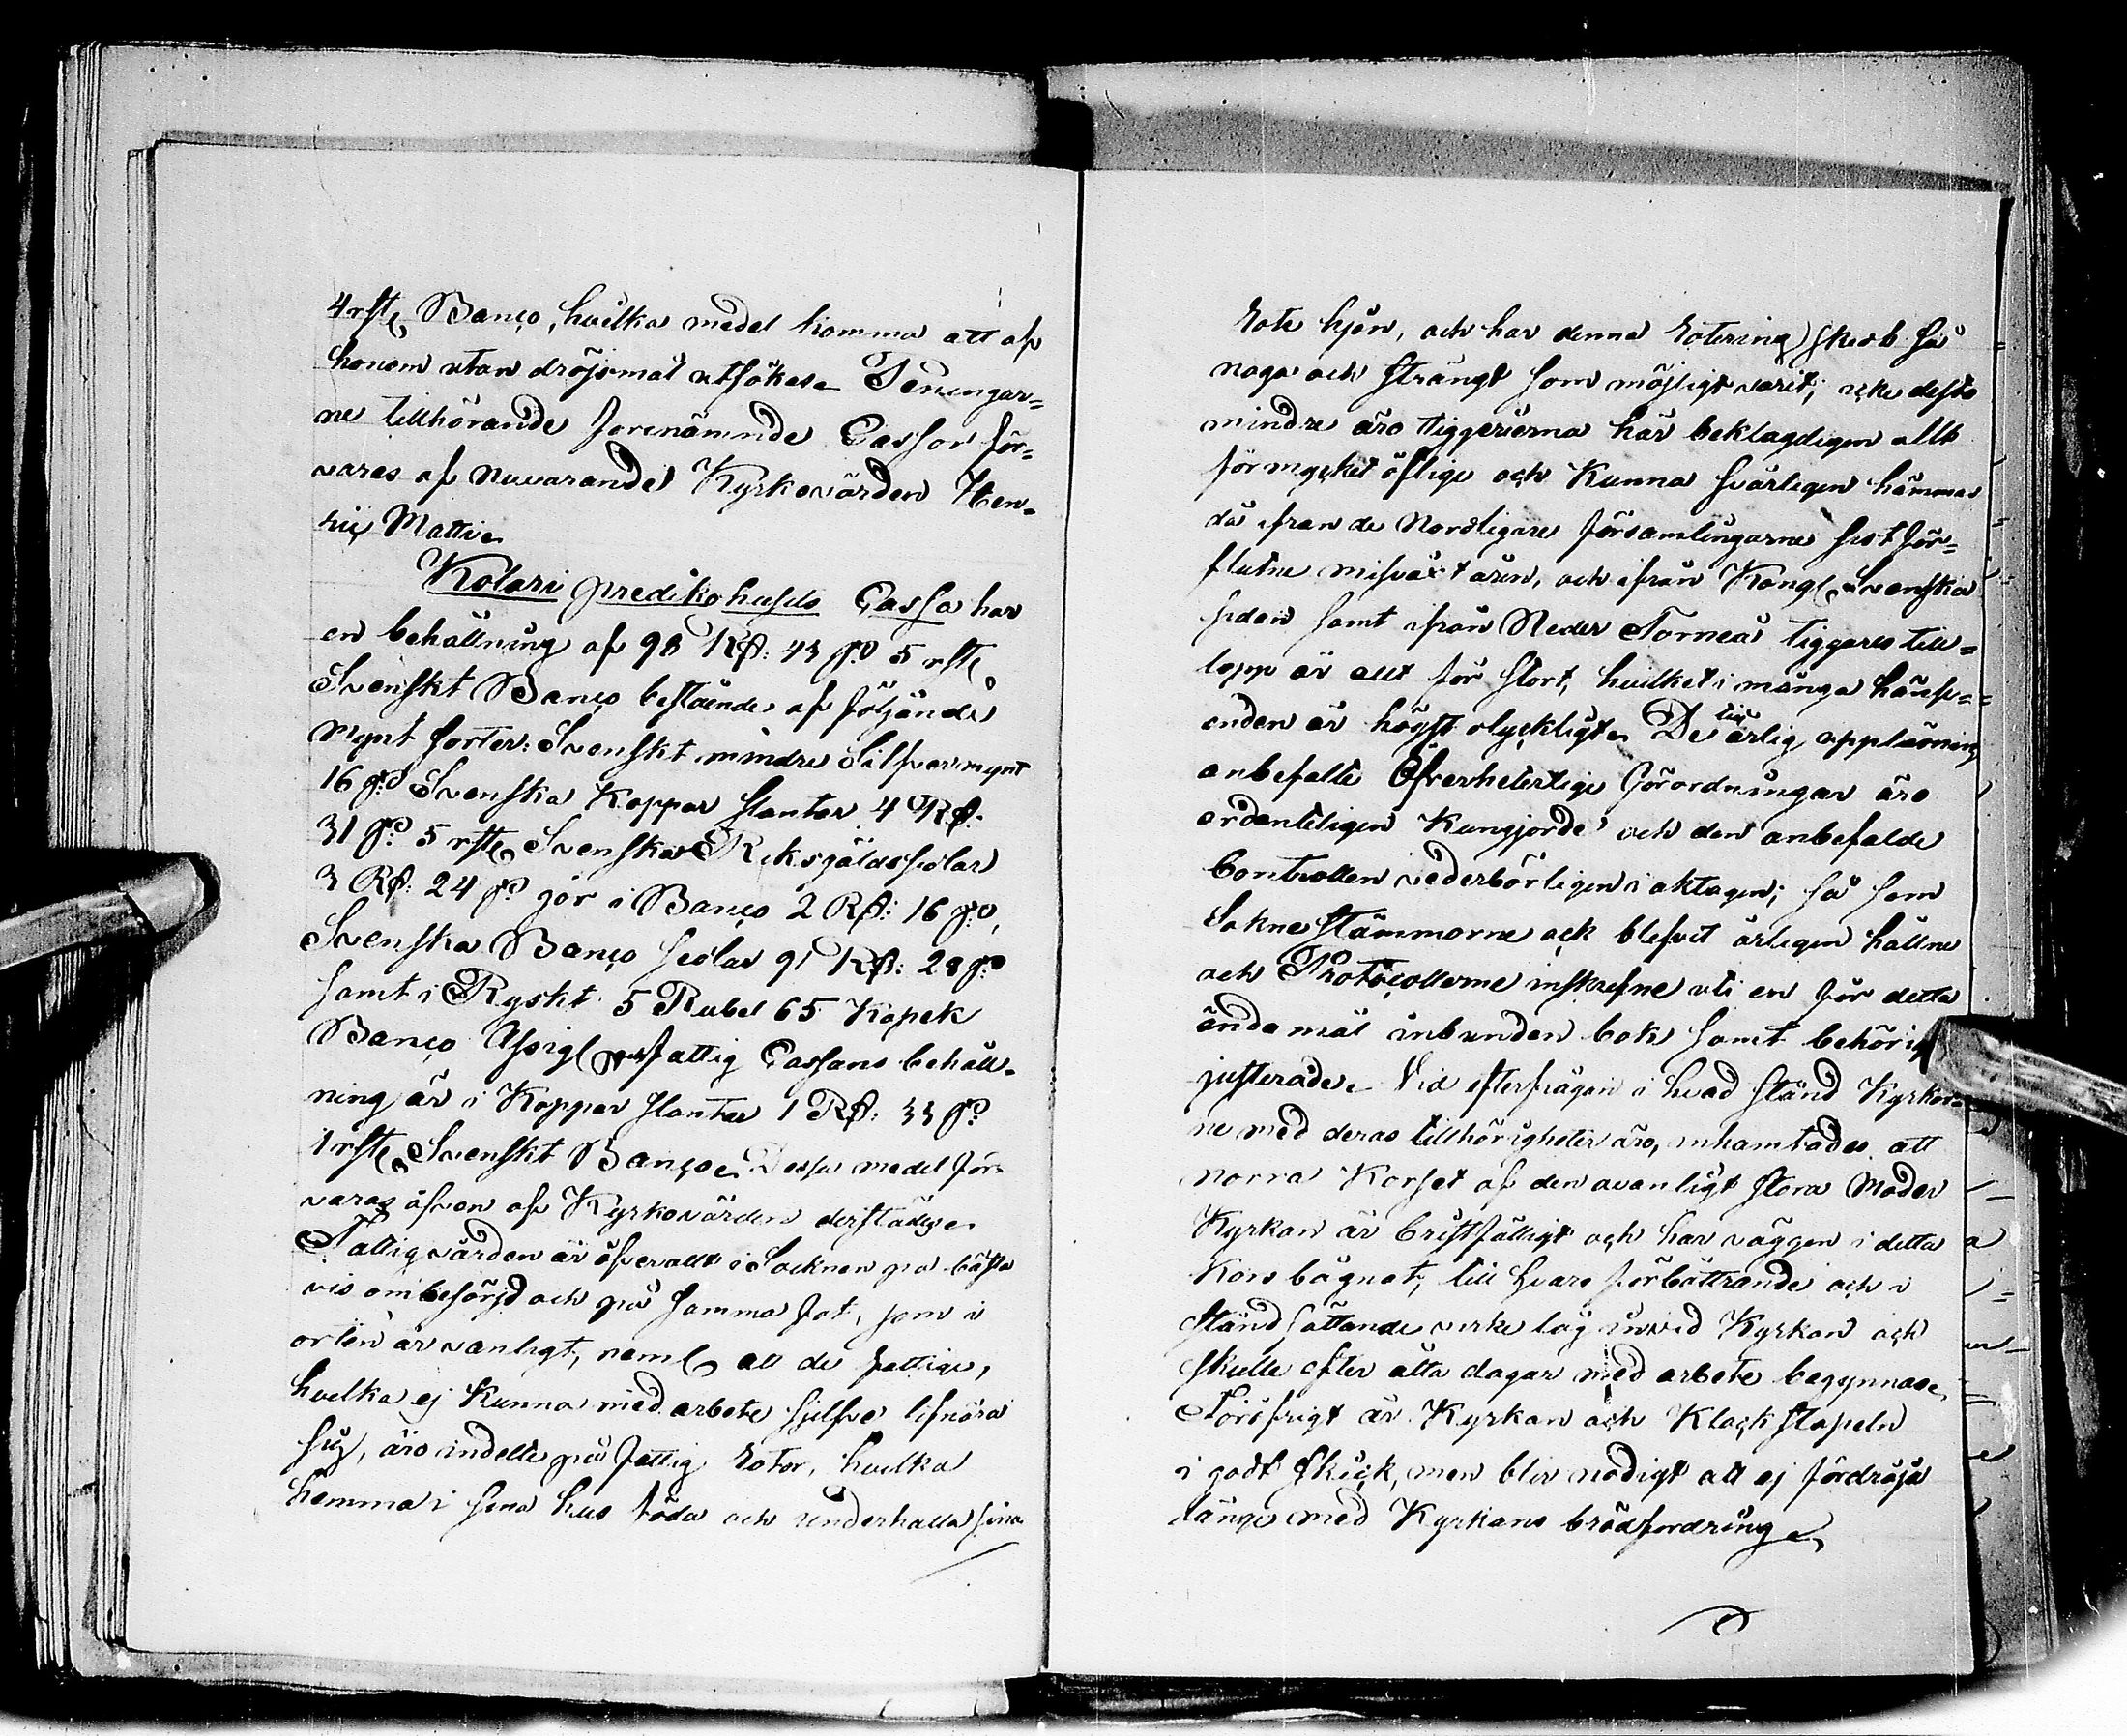 4 rste Banco, hvilka medel komma att af
honom utan dröjsmål utsökas. Peningar=
ne tillhörande förenämnde Cassor för=
vares af nuvarande Kyrkovärden Hen-
ric Mattie.
Kolari predikohusets Cassa har
en behållning af 98 Rß: 43 ß 5 rste
Svenskt Banco bestående af följande
Mynt sorter: Svenskt mindre Silfvermynt
16 ß Svenska Koppar slantar 4 Rß:
31 ß 5 rste Svenska Riksgäldssedlar
3 Rß: 24 ß gör i Banco 2 Rß: 16 ß,
Svenska Banco sedlar 91 Rß: 28 ß
samt i Ryskt 5 Rubel 65 Kopek
Banco Assig fattig Cassans behåll-
ning är i Koppar slantar 1 Rß: 33 ß
1 rste Svenskt Banco. Dessa medel för-
varas äfven af Kyrkovärden derstädes.
Fattigvården är öfverallt i Socknen på bästa
vis ombesörjd och på samma fot, som i
orten är vanligt, neml att de fattige,
hvilka ej kunna med arbete sjelfve lifnära
sig, äro indelte på fattig rotor, hvilka
hemma i sina hus föda och underhålla sina
rote hjon, och har denna rotering skedt så
noga och strängt som möjligt varit; icke desto
mindre äro tiggerierna här beklagligen allt
för mycket öflige och kunna svårligen hämmas
då ifrån de Nordligare församlingarne sist för=
flutne missväxt åren, och ifrån Kongl Svenska
sidan samt ifrån Neder Torneå tiggares till=
lopp är allt för stort, hvilket i många hänse=
enden är högst olyckligt. De till årlig uppläsning
anbefalte Öfverhetlige Förordningar äro
ordenteligen kungjorde och den anbefalde
Controllen vederbörligen i akttagen; så som
Sokne Stämmorne ock blefvit årligen hållne
och Protocollerne inskrefne uti en för detta
ändamål inbunden bok samt behörig
justerade. Vid efterfrågan i hvad stånd Kyrkor
ne med deras tillhörigheter äro, inhämtades att
norra Korset af den ovanligt stora Moder
Kyrkan är bristfälligt och har väggen i detta
Kors bågnat, till hvars förbättrande och i
stånd sättande virke låg invid Kyrkan och
skulle efter åtta dagar med arbete begynnas.
Föröfrigt är Kyrkan och Klock Stapeln
i godt skick, men blir nödigt att ej fördröja
länge med Kyrkans brädfordring